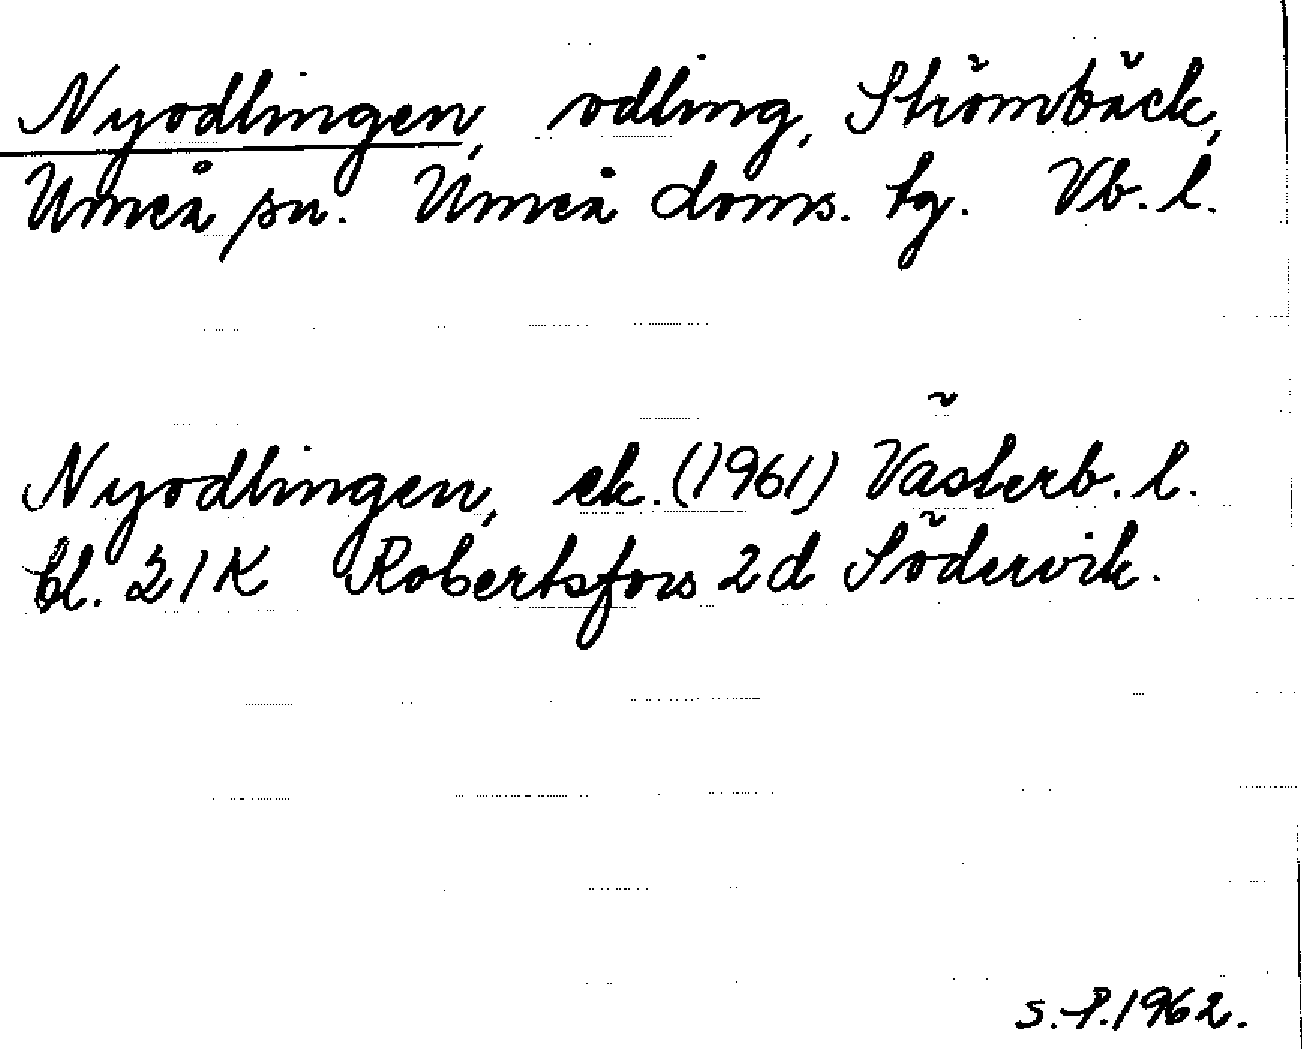 Nyodlingen, odling, Strömbäck,
Umeå sn. Umeå doms. tg. Vb. l.
Nyodlingen, ek. (1961) Västerb. l.
bl. 21K Robertsfors 2d Södervik.
S. P. 1962.